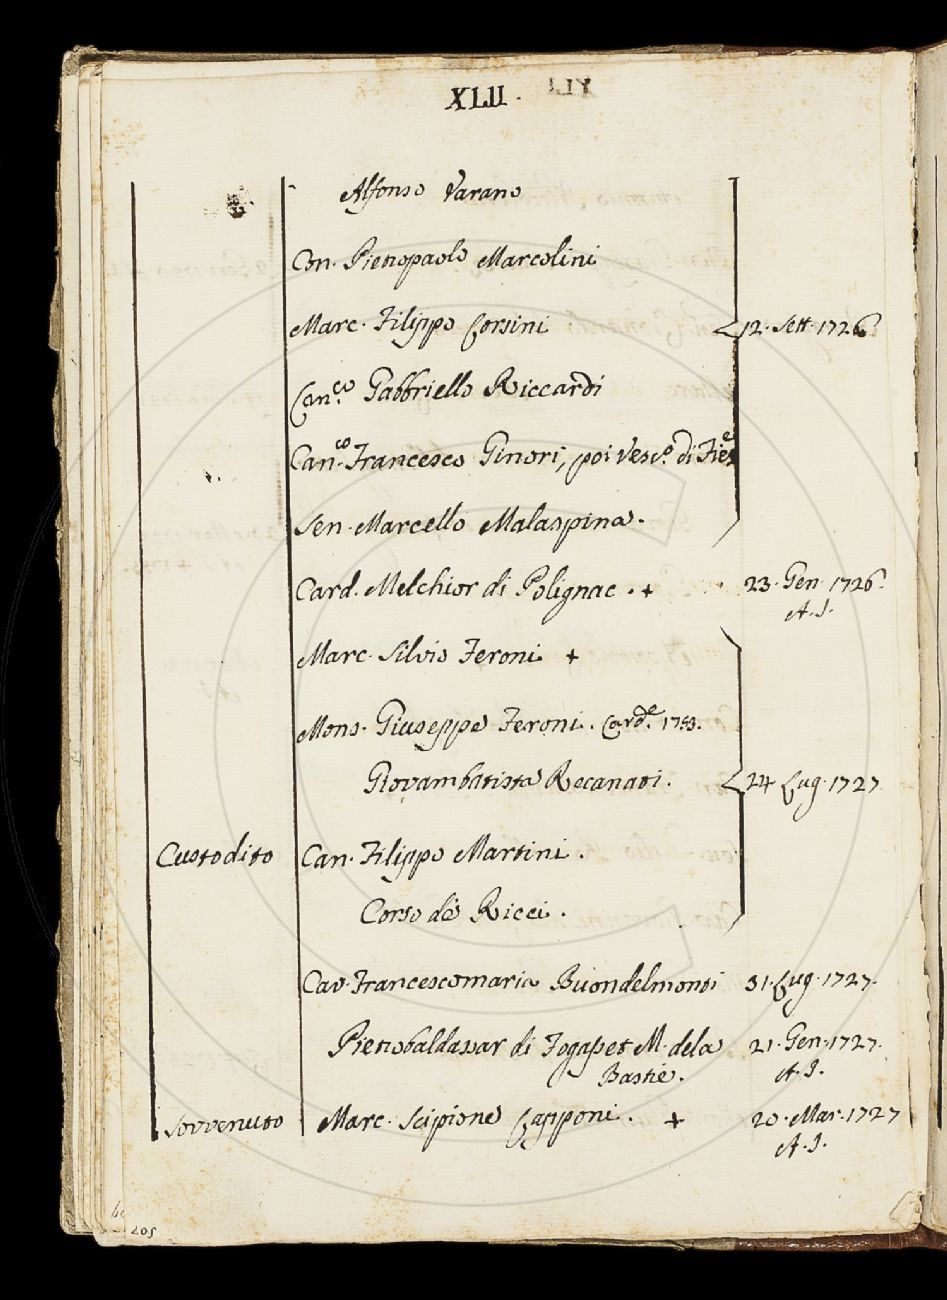 XLII.
Alfonso Varano
Con. Pietropaolo Marcolini
Marc. Filippo Corsini 12. Sett. 1726
Can.co Gabbriello Riccardi
Can.co Francesco Ginori, poi Vesc.o di Fies.e
Sen. Marcello Malaspina.
Card. Melchior di Polignac. + 23. Gen. 1726.
A. I.
Marc. Silvio Feroni +
Mons. Giuseppe Feroni. Card.e 1753.
Giovambatista Recanati. 24 Lug. 1727
Custodito Can. Filippo Martini.
Corso de' Ricci.
Cav. Francescomaria Buondelmonti 31. Lug. 1727.
Pietrobaldassar di Fogasset M. dela 21. Gen. 1727.
Bastie. A. I.
Sovvenuto Marc. Scipione Capponi. + 20. Mar. 1727
A. I.
205